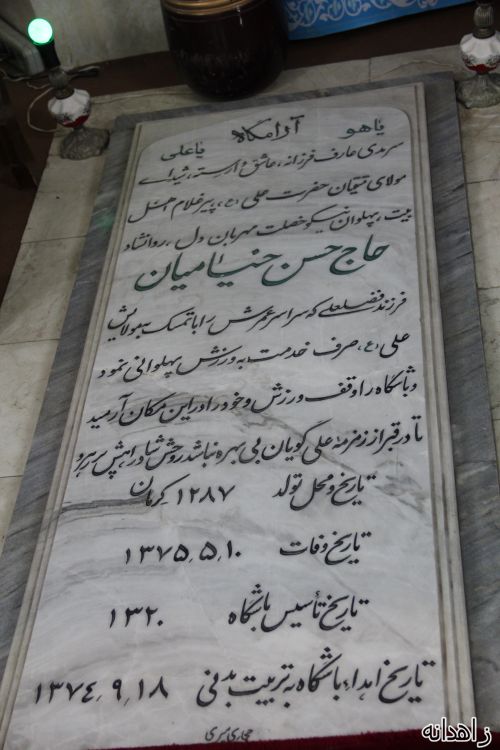 یاهو آرامگاه یاعلی
سرمدی عارف فرزانه، عاشق وارسته، شیدای
مولای متقیان حضرت علی (ع)، پیرغلام اهل
بیت، پهلوان نیکو خصلت مهربان دل، روانشاد
حاج حسن ضیامیان
فرزند فضلعلی که سراسر عمرش را با تمسک به مولایش
علی (ع) صرف خدمت به ورزش پهلوانی نمود
و باشگاه را وقف ورزش و خود را در این مکان آرمید
تا در قبر از زمزمهٔ علی گویان بی بهره نباشد روحش شاد راهش پر رهرو
تاریخ و محل تولد ۱۲۸۷ کرمان
تاریخ وفات ۱۳۷۵٫۵٫۱۰
تاریخ تأسیس باشگاه ۱۳۲۰
تاریخ اهداء باشگاه به تربیت بدنی ۱۳۷۴٫۹٫۱۸
حجاری سری
زاهدانه